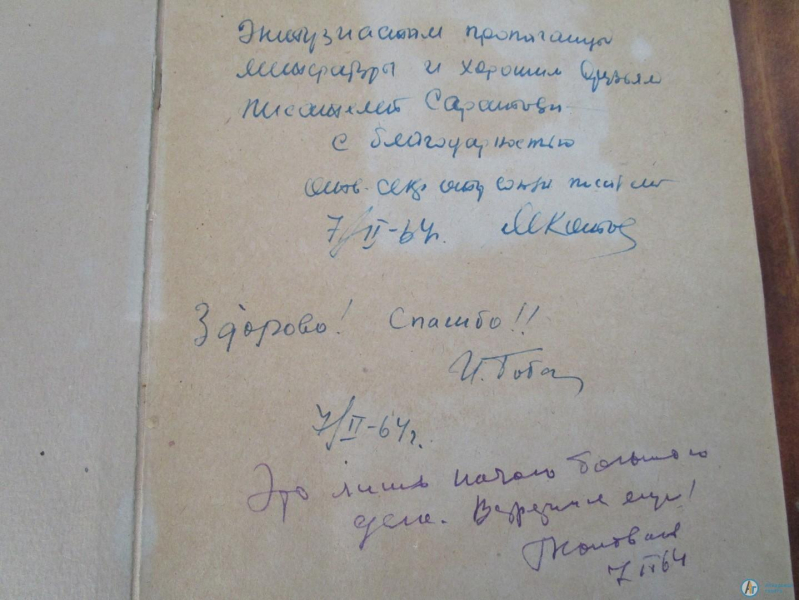 Энтузиастам пропаганды
литературы и хорошим друзьям
писателей Саратова
с благодарностью
отв. секр. отд союза писателей
7/II-64г. МКотов
Здорово! Спасибо!!
И. Боба
7/II-64г.
Это лишь начало большого
дела. Встретимся еще!
7 II 64